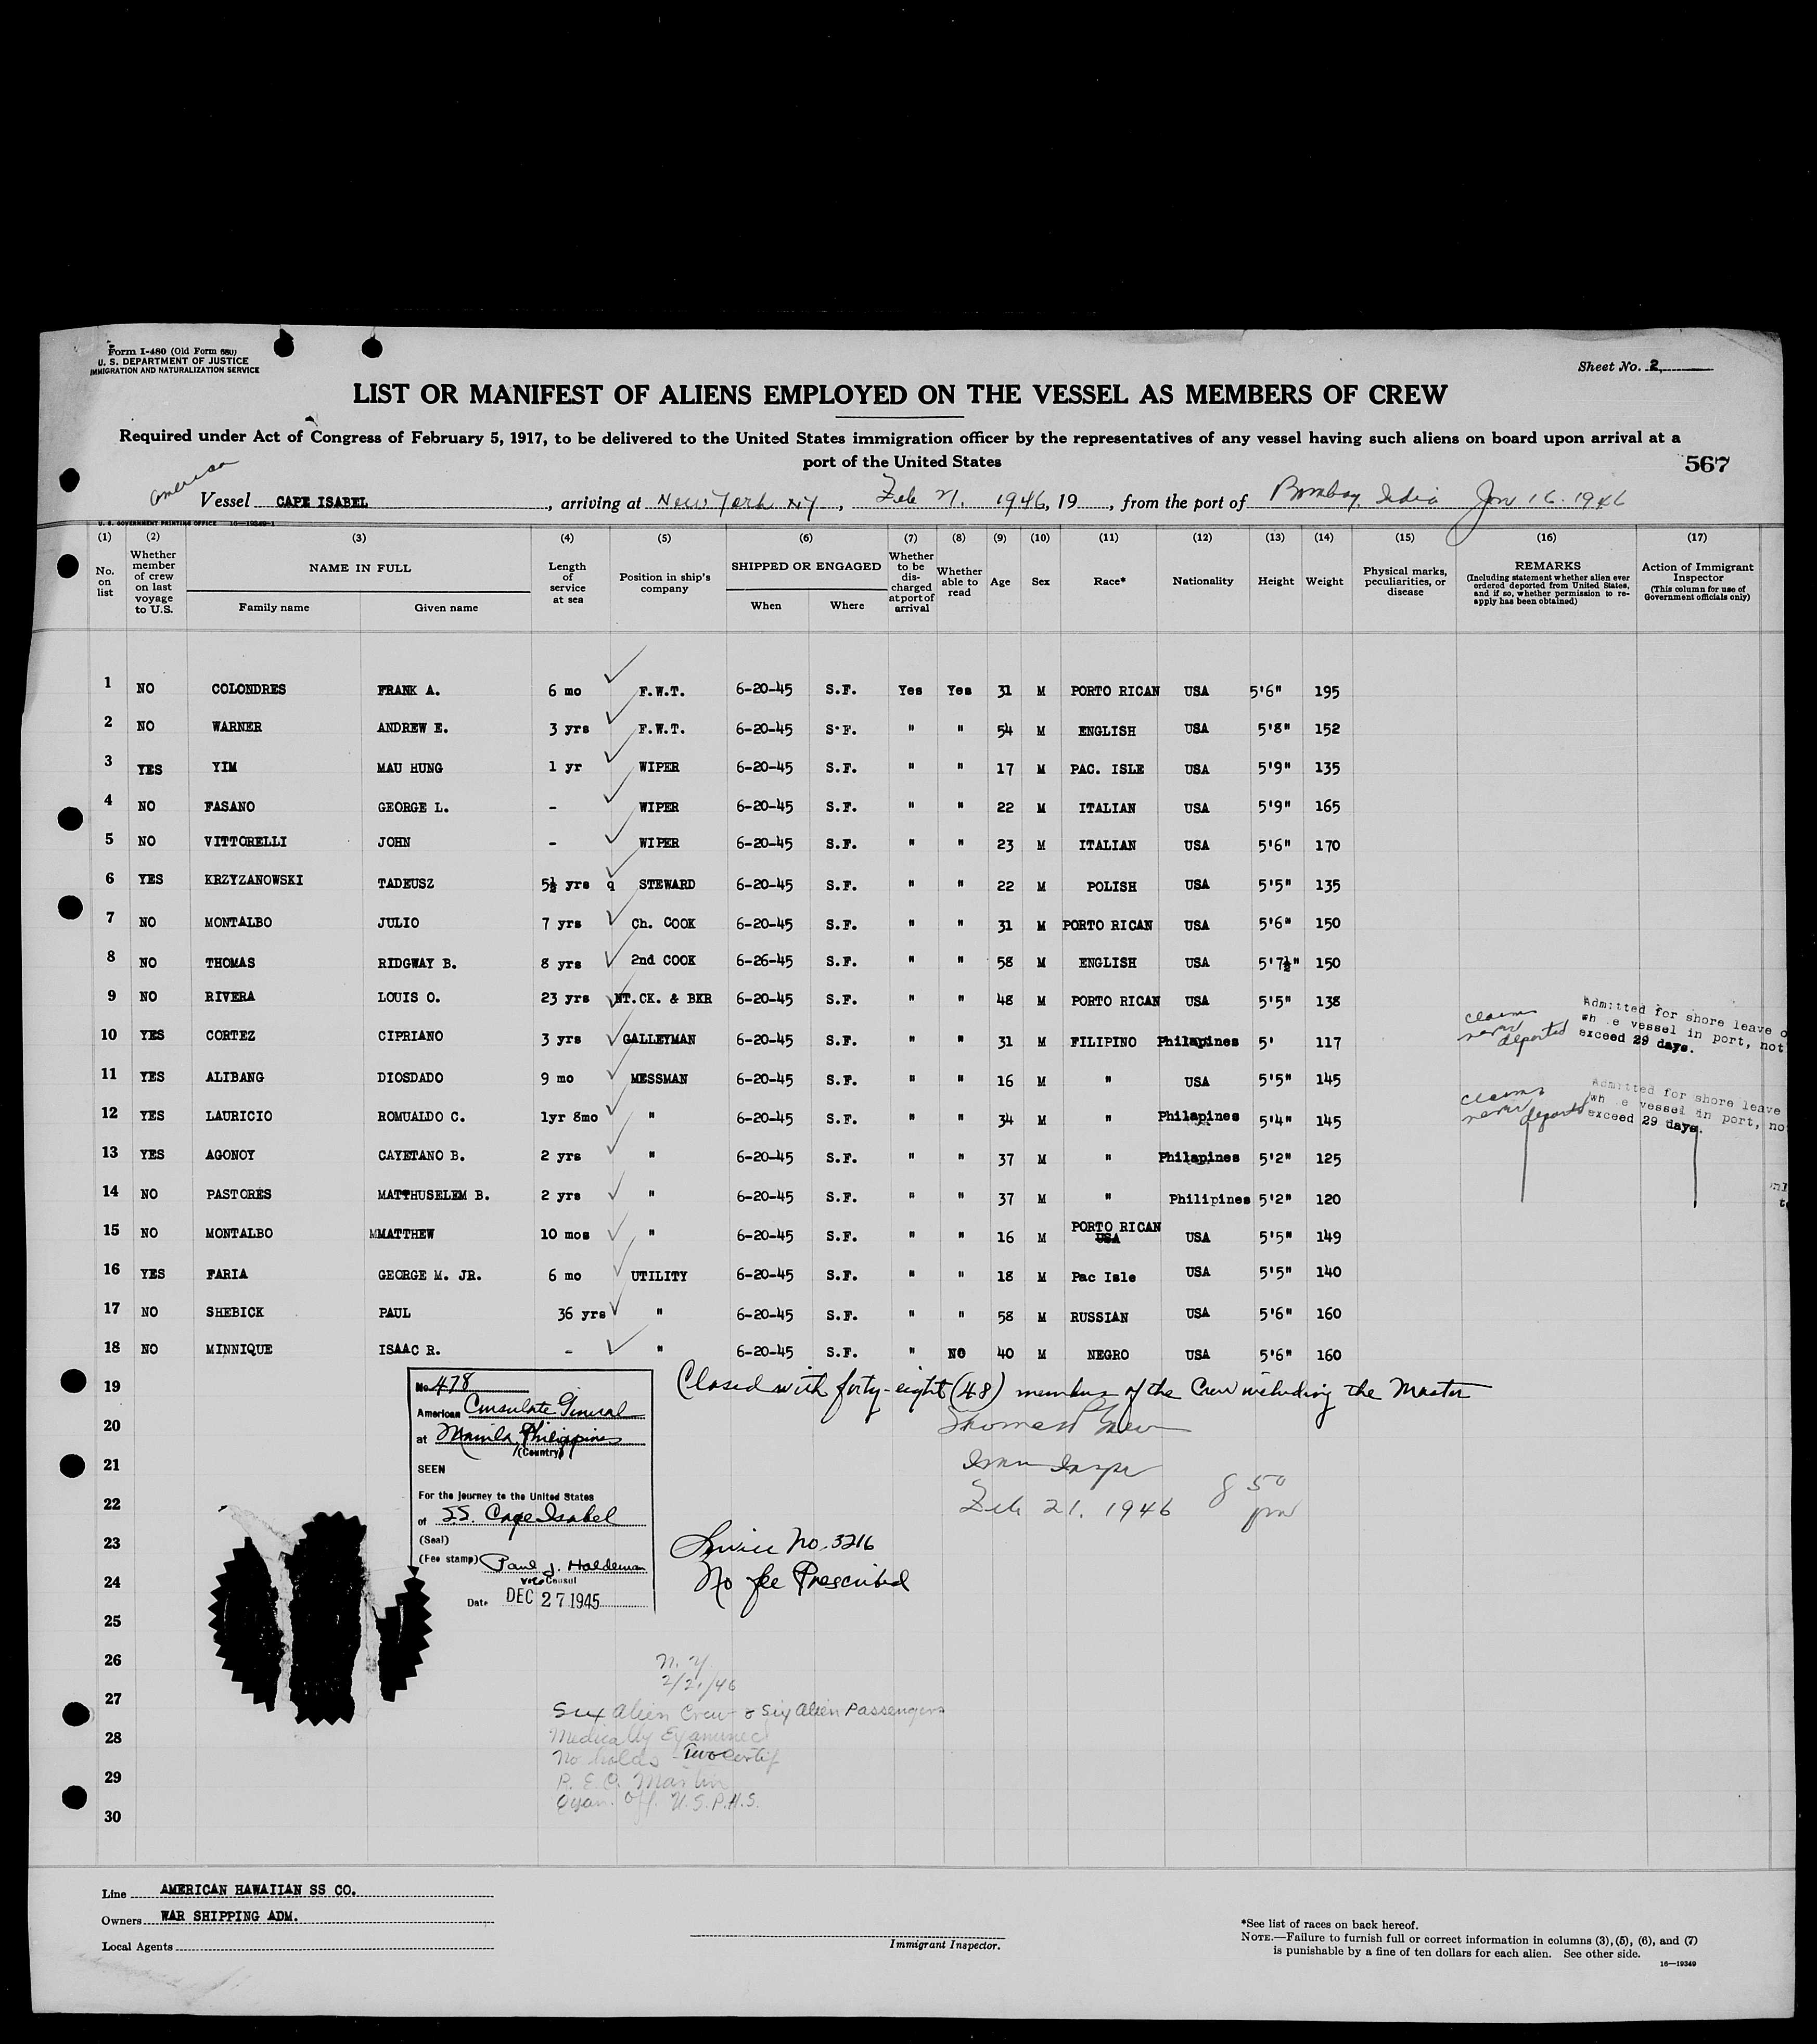 Form I-480 (Old Form 680)
U. S. DEPARTMENT OF JUSTICE
IMMIGRATION AND NATURALIZATION SERVICE
Sheet No. 2,
LIST OR MANIFEST OF ALIENS EMPLOYED ON THE VESSEL AS MEMBERS OF CREW
Required under Act of Congress of February 5, 1917, to be delivered to the United States immigration officer by the representatives of any vessel having such aliens on board upon arrival at a
port of the United States
567
American
Vessel CAPE ISABEL, arriving at New York NY, Feb 21. 1946, 19, from the port of Bombay, India Jan 16. 1946
U. S. GOVERNMENT PRINTING OFFICE 16—19349-1
(1) No. on list
(2) Whether member of crew on last voyage to U.S.
(3) NAME IN FULL Family name Given name
(4) Length of service at sea
(5) Position in ship's company
(6) SHIPPED OR ENGAGED When Where
(7) Whether to be discharged at port of arrival
(8) Whether able to read
(9) Age
(10) Sex
(11) Race*
(12) Nationality
(13) Height
(14) Weight
(15) Physical marks, peculiarities, or disease
(16) REMARKS (Including statement whether alien ever ordered deported from United States, and if so, whether permission to re-apply has been obtained)
(17) Action of Immigrant Inspector (This column for use of Government officials only)
1 NO COLONDRES FRANK A. 6 mo F.W.T. 6-20-45 S.F. Yes Yes 31 M PORTO RICAN USA 5'6" 195
2 NO WARNER ANDREW E. 3 yrs F.W.T. 6-20-45 S.F. " " 54 M ENGLISH USA 5'8" 152
3 YES YIM MAU HUNG 1 yr WIPER 6-20-45 S.F. " " 17 M PAC. ISLE USA 5'9" 135
4 NO FASANO GEORGE L. - WIPER 6-20-45 S.F. " " 22 M ITALIAN USA 5'9" 165
5 NO VITTORELLI JOHN - WIPER 6-20-45 S.F. " " 23 M ITALIAN USA 5'6" 170
6 YES KRZYZANOWSKI TADEUSZ 5½ yrs q STEWARD 6-20-45 S.F. " " 22 M POLISH USA 5'5" 135
7 NO MONTALBO JULIO 7 yrs Ch. COOK 6-20-45 S.F. " " 31 M PORTO RICAN USA 5'6" 150
8 NO THOMAS RIDGWAY B. 8 yrs 2nd COOK 6-26-45 S.F. " " 58 M ENGLISH USA 5'7½" 150
9 NO RIVERA LOUIS O. 23 yrs NT.CK. & BKR 6-20-45 S.F. " " 48 M PORTO RICAN USA 5'5" 138
10 YES CORTEZ CIPRIANO 3 yrs GALLEYMAN 6-20-45 S.F. " " 31 M FILIPINO Philapines 5' 117 claims never deported Admitted for shore leave o wh e vessel in port, not exceed 29 days.
11 YES ALIBANG DIOSDADO 9 mo MESSMAN 6-20-45 S.F. " " 16 M " USA 5'5" 145
12 YES LAURICIO ROMUALDO C. 1yr 8mo " 6-20-45 S.F. " " 34 M " Philapines 5'4" 145 claims never deported Admitted for shore leave wh e vessel in port, no exceed 29 days.
13 YES AGONOY CAYETANO B. 2 yrs " 6-20-45 S.F. " " 37 M " Philapines 5'2" 125
14 NO PASTORES MATTHUSELEM B. 2 yrs " 6-20-45 S.F. " " 37 M " Philipines 5'2" 120
15 NO MONTALBO MMATTHEW 10 mos " 6-20-45 S.F. " " 16 M PORTO RICAN USA USA 5'5" 149
16 YES FARIA GEORGE M. JR. 6 mo UTILITY 6-20-45 S.F. " " 18 M Pac Isle USA 5'5" 140
17 NO SHEBICK PAUL 36 yrs " 6-20-45 S.F. " " 58 M RUSSIAN USA 5'6" 160
18 NO MINNIQUE ISAAC R. - " 6-20-45 S.F. " NO 40 M NEGRO USA 5'6" 160
19
20
21
22
23
24
25
26
27
28
29
30
Closed with forty-eight (48) members of the Crew including the Master
Feb 21. 1946 8 50 pm
No. 478
American Consulate General
at Manila, Philippines
(Country)
SEEN
For the journey to the United States
of SS. Cape Isabel
(Seal)
(Fee stamp) Paul J. Haldeman
Vice Consul
Date DEC 27 1945
Service No. 3216
No fee Prescribed
N. Y
2/21/46
Six Alien Crew & Six Alien Passengers
Medically Examined
No holds - Two Certif
R. E. O. Martin
Exam. Off. U.S.P.H.S.
Line AMERICAN HAWAIIAN SS CO.
Owners WAR SHIPPING ADM.
Local Agents
Immigrant Inspector.
*See list of races on back hereof.
NOTE.—Failure to furnish full or correct information in columns (3), (5), (6), and (7)
is punishable by a fine of ten dollars for each alien. See other side.
16—19349